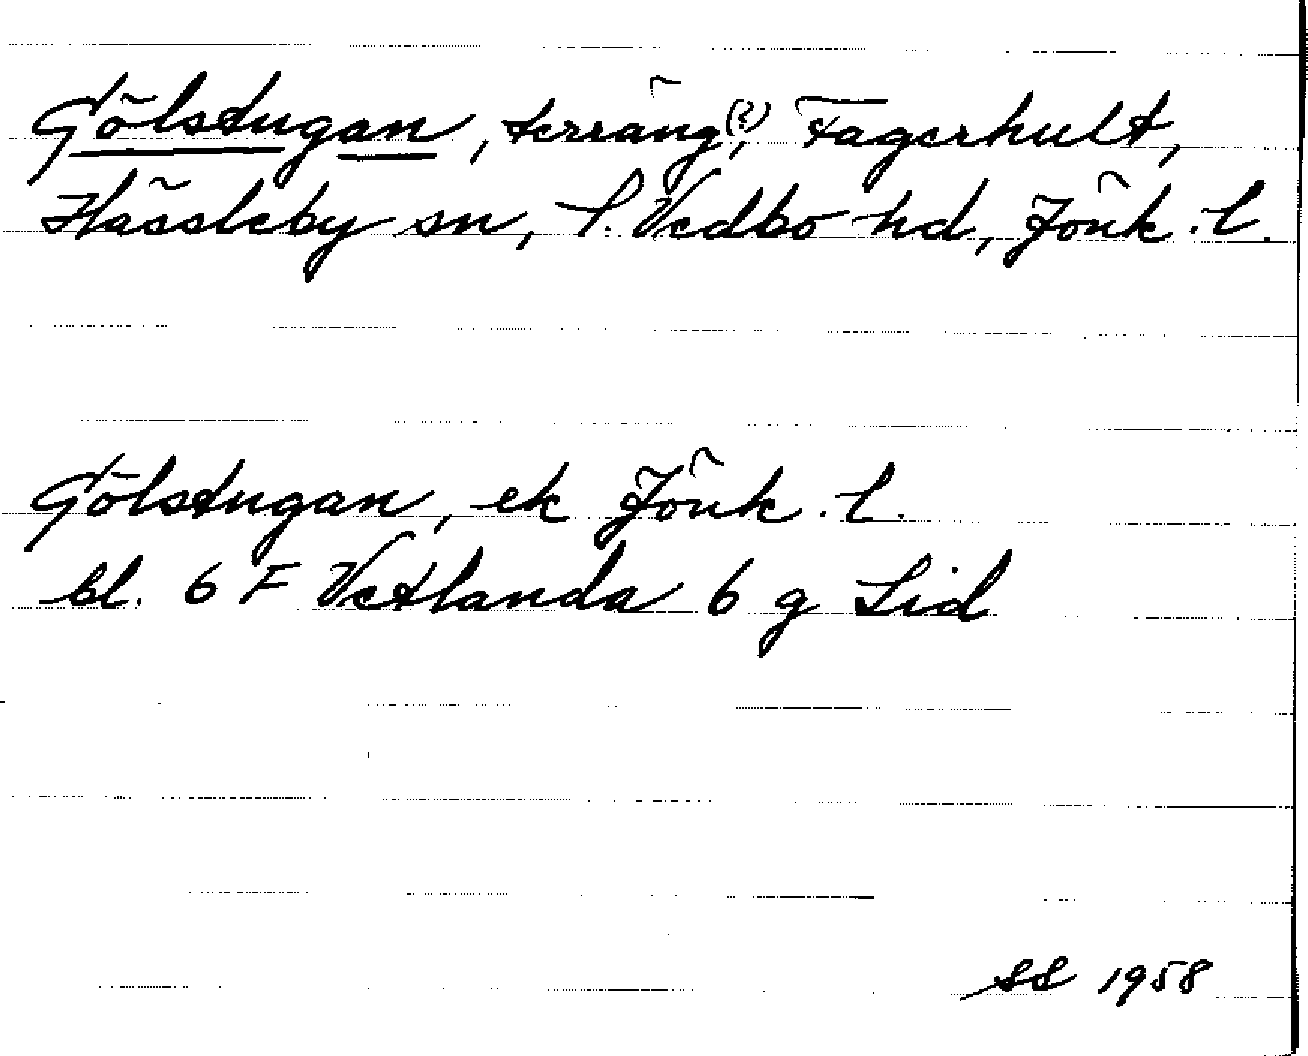 Gölstugan, terräng(?), Fagerhult,
Hässleby sn, S. Vedbo hd, Jönk. l.
Gölstugan, ek Jönk. l.
bl. 6 F Vetlanda 6 g Lid
SS 1958